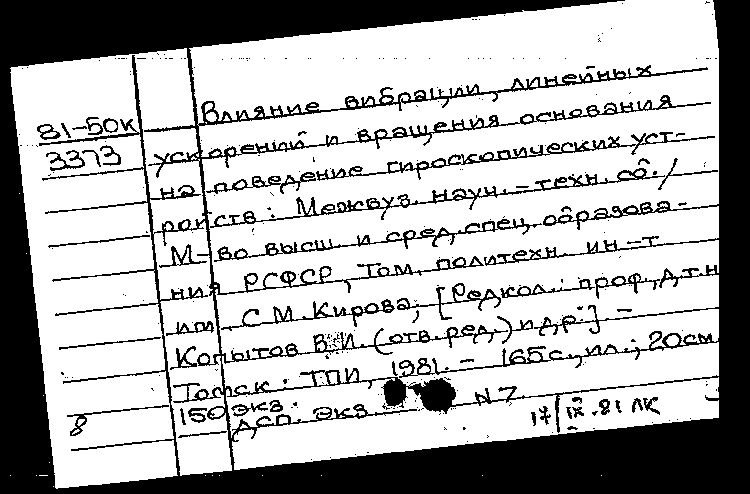 Влияние вибрации, линейных
81-50к
ускорений и вращения основания
3373
на поведение гироскопических уст-
ройств: Межвуз. науч.-техн. сб./
М-во высш. и сред. спец. образова-
ния РСФСР, Том. политехн. ин-т
им. С.М. Кирова; [Редкол.: проф., д.т.н
Копытов В.И. (отв. ред.) и др.] -
Томск: ТПИ, 1981. - 165с., ил.; 20см
150 экз.
8
ДСП. экз N 7
17/IX.81 ЛК